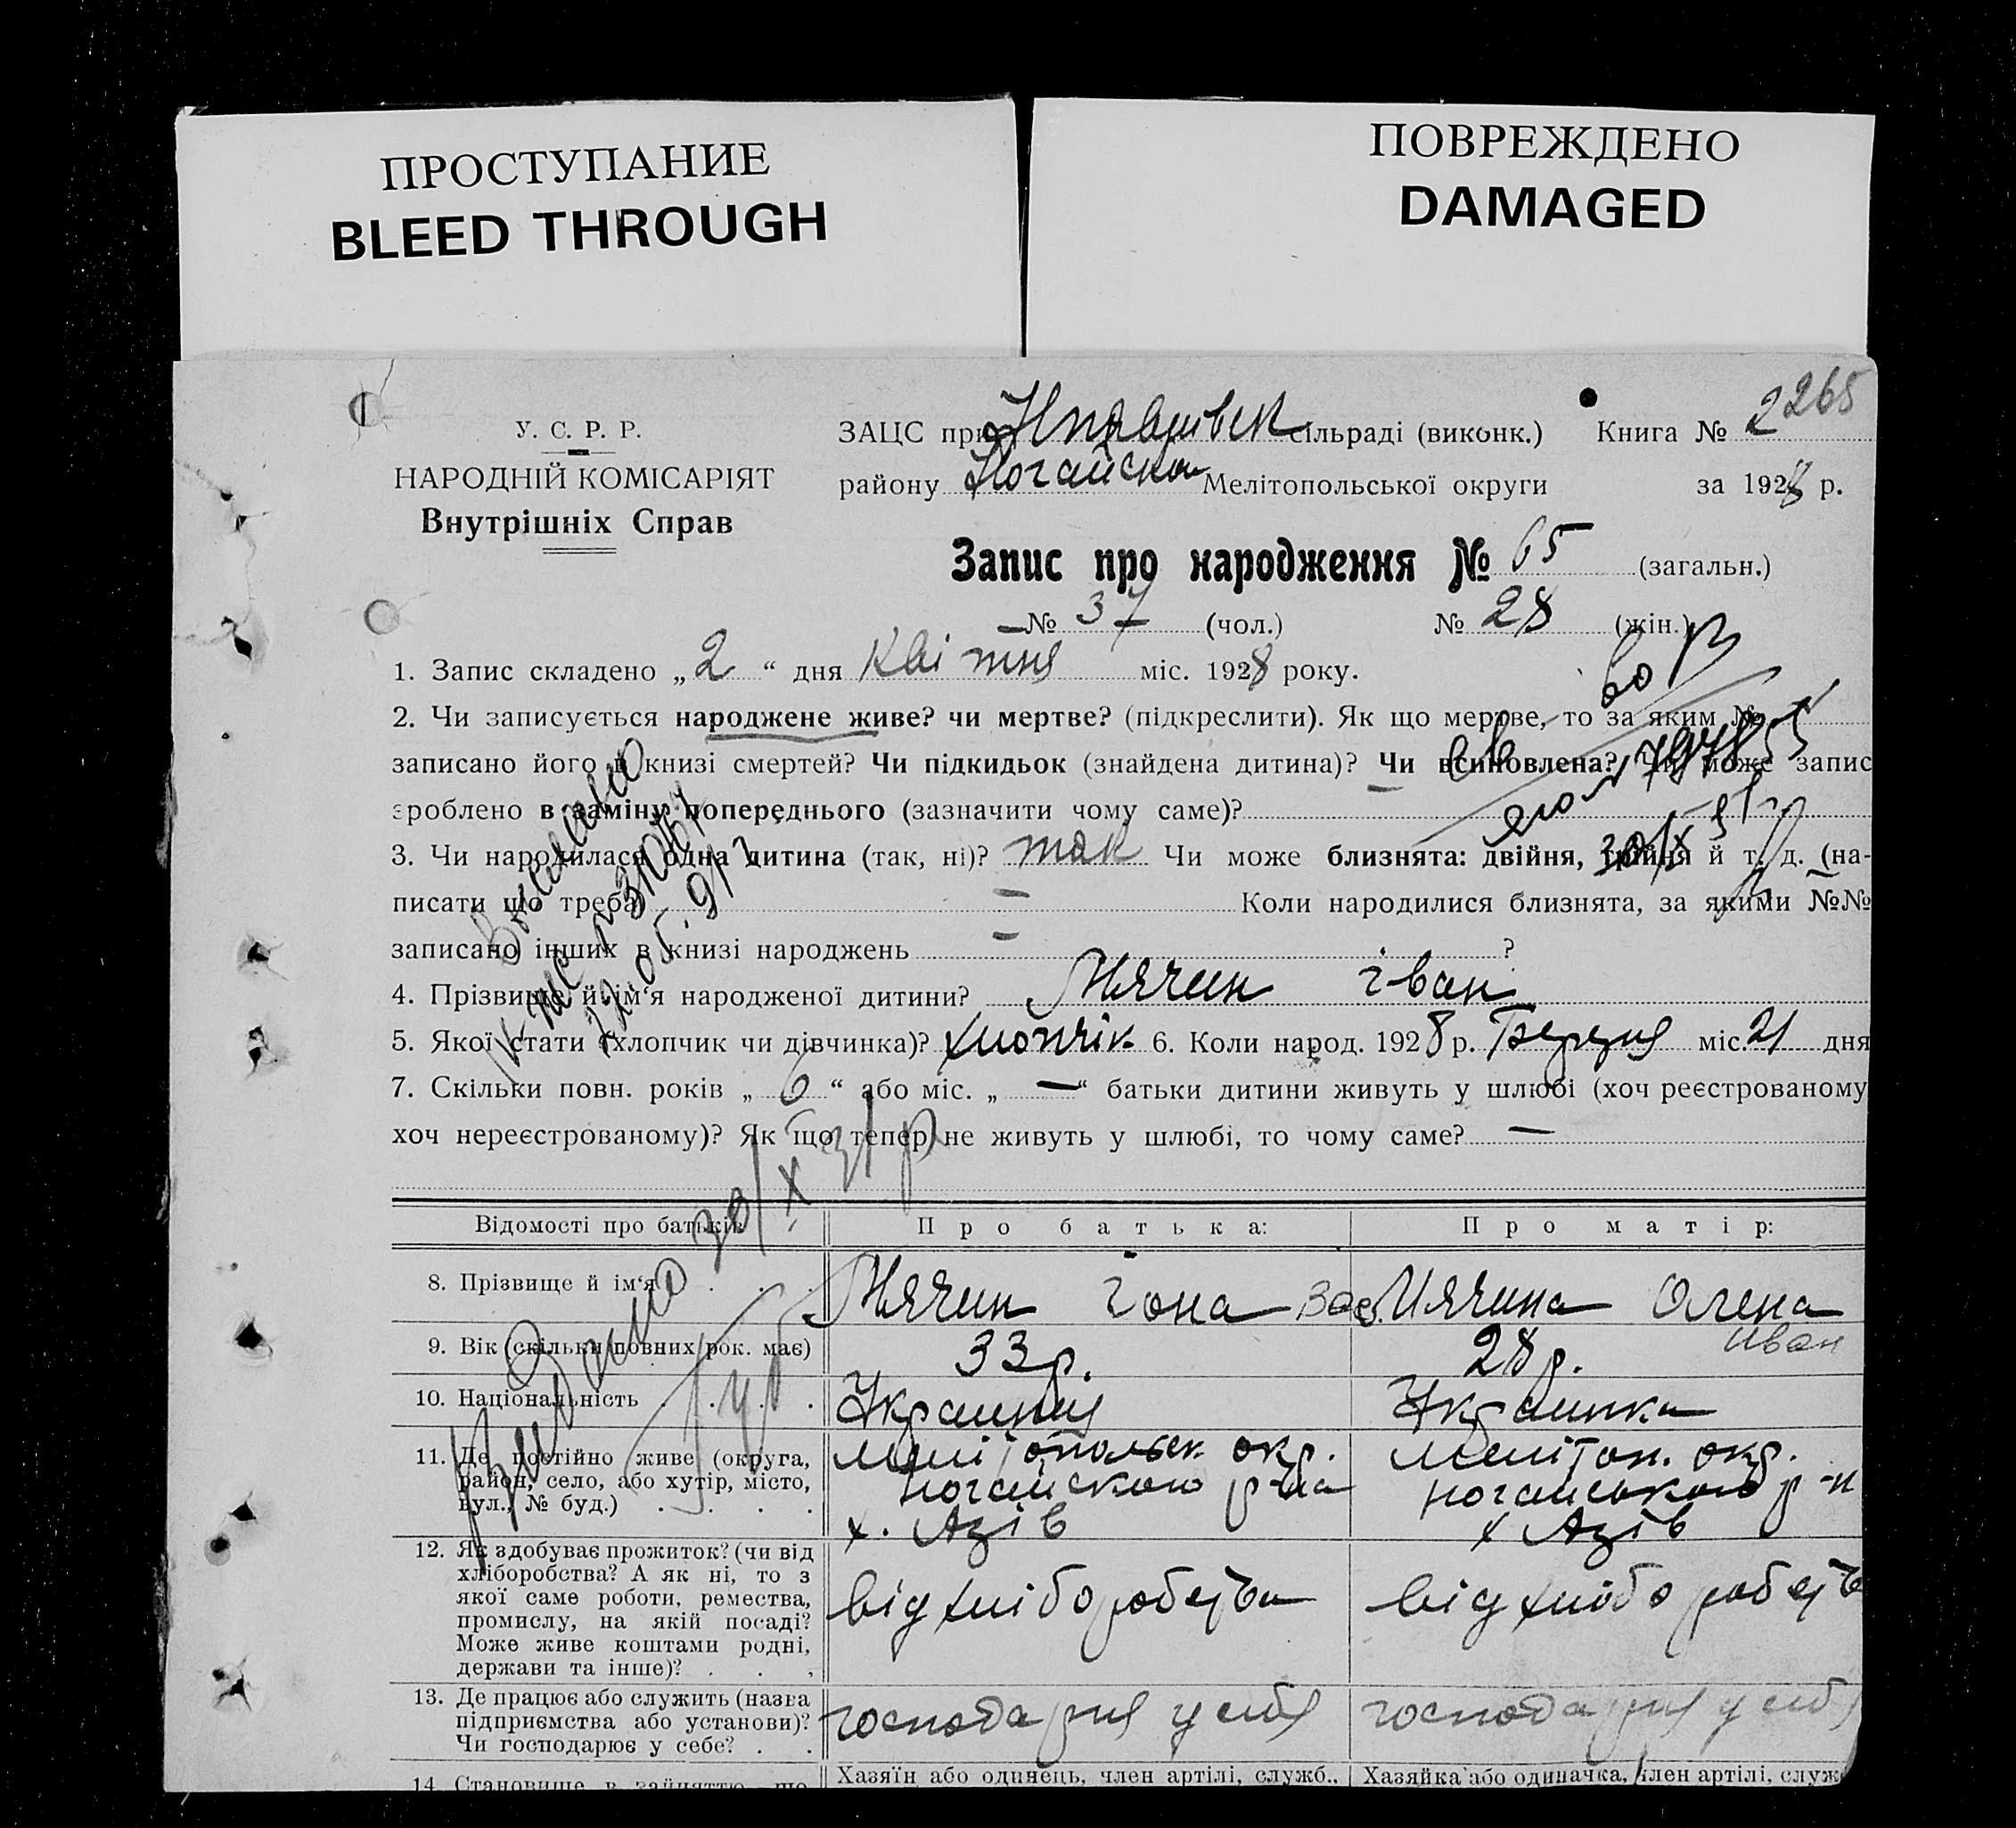 ПРОСТУПАНИЕ
BLEED THROUGH
ПОВРЕЖДЕНО
DAMAGED
У. С. Р. Р.
НАРОДНІЙ КОМІСАРІЯТ
Внутрішніх Справ
ЗАЦС при сільраді (виконк.) Книга № 2 265
району Ногайськ Мелітопольської округи за 1928 р.
Запис про народження № 65 (загальн.)
№ 37 (чол.) № 28 (жін.)
1. Запис складено „ 2 “ дня Квітня міс. 1928 року.
2. Чи записується народжене живе? чи мертве? (підкреслити). Як що мертве, то за яким №
записано його в книзі смертей? Чи підкидьок (знайдена дитина)? Чи всиновлена? Чи може запис
зроблено в заміну попереднього (зазначити чому саме)?
3. Чи народилася одна дитина (так, ні)? так Чи може близнята: двійня, трійня й т. д. (на-
писати що треба) — Коли народилися близнята, за якими №№
записано інших в книзі народжень — ?
4. Прізвище й ім‘я народженої дитини? Нячин іван
5. Якої стати (хлопчик чи дівчинка)? хлопчік 6. Коли народ. 1928 р. Березня міс. 21 дня
7. Скільки повн. років „ 6 “ або міс. „ — “ батьки дитини живуть у шлюбі (хоч реєстрованому
хоч нереєстрованому)? Як що тепер не живуть у шлюбі, то чому саме? —
Відомості про батьків Про батька: Про матір:
8. Прізвище й ім‘я . . . Нячин іона Вас. Нячина Олена
Иван
9. Вік (скільки повних рок. має) 33 р. 28 р.
10. Національність . . . . Українець Українка
11. Де постійно живе (округа,
район, село, або хутір, місто,
вул., № буд.) . . . .
Мелітопольськ окр.
ногайского р-на
х. Азів
Мелітоп. окр.
ногайського р-н
х Азів
12. Як здобуває прожиток? (чи від
хліборобства? А як ні, то з
якої саме роботи, ремества,
промислу, на якій посаді?
Може живе коштами родні,
держави та інше)? . . .
від хліборобства
від хліборобств
13. Де працює або служить (назва
підприємства або установи)?
Чи господарює у себе? . .
господарня у себя
господарня у себя
14. Становище в зайняттю, що
Хазяїн або одинець, член артілі, служб.,
Хазяйка або одиначка, член артілі, служ